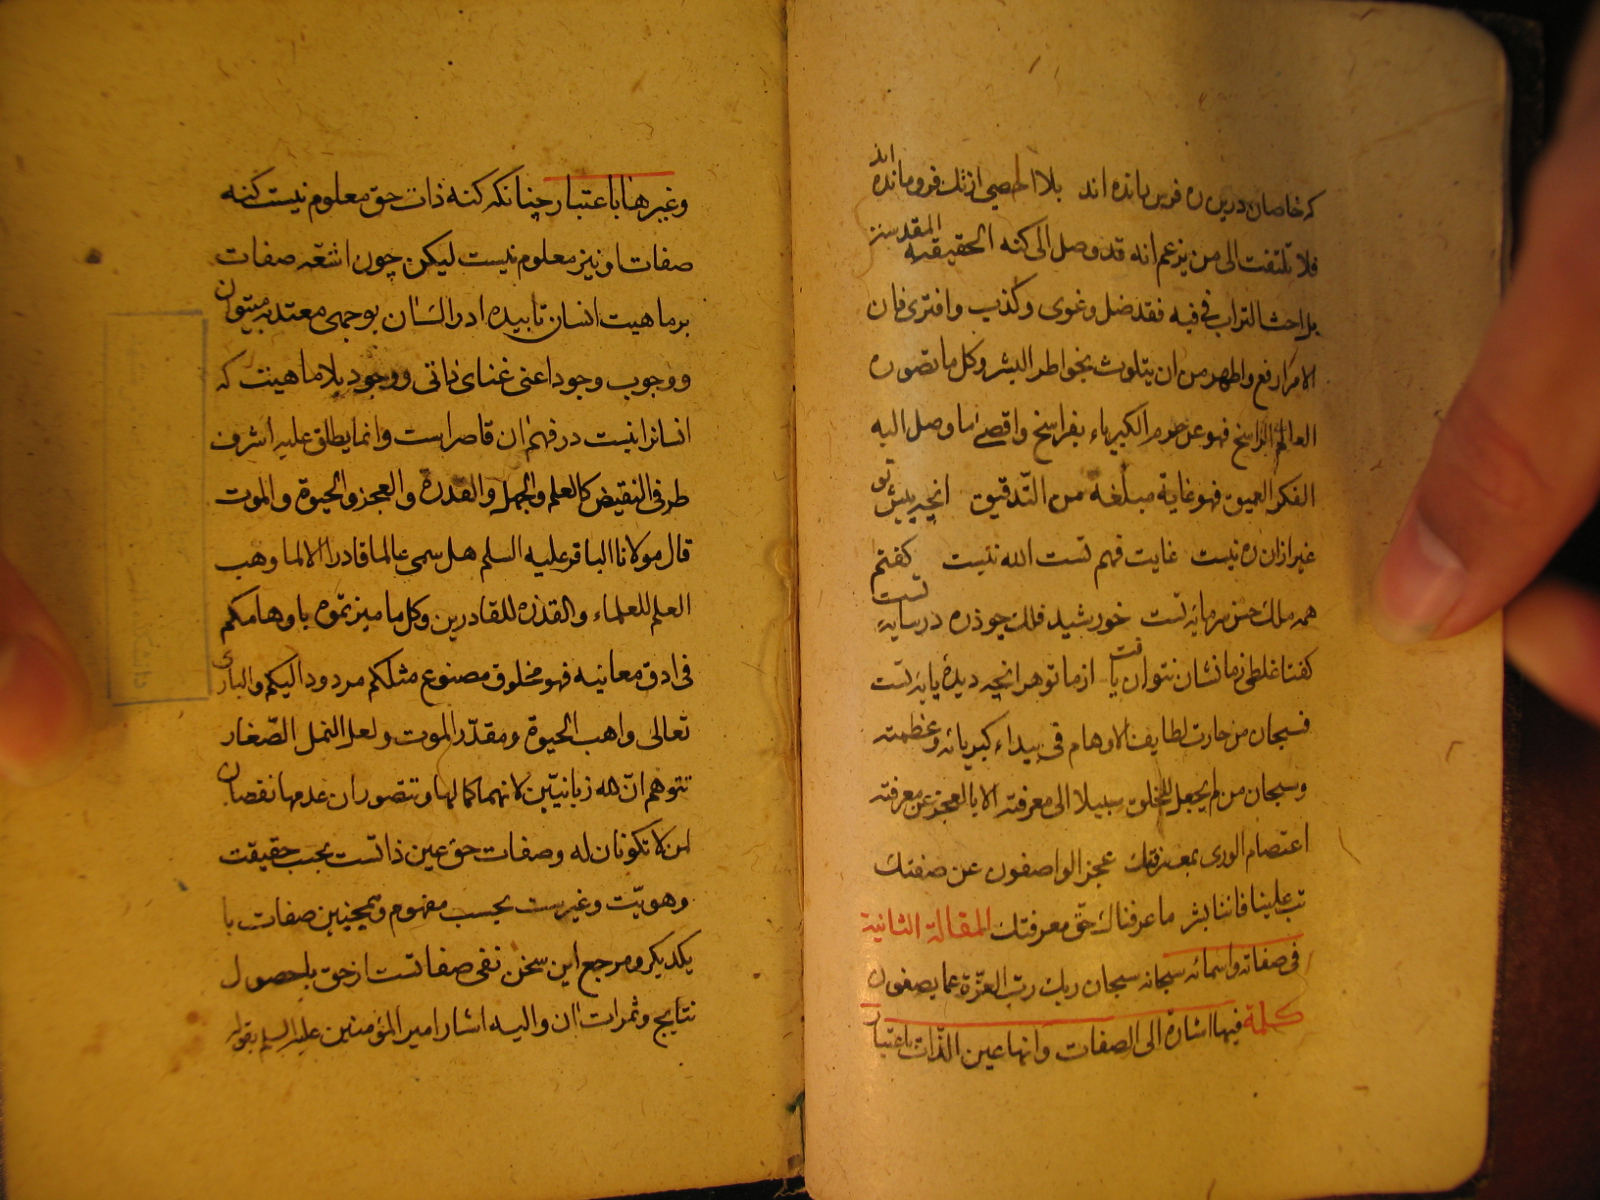 که خاصان درین ره فرس رانده اند بلا احصی از تك فرو مانده اند
فلا تلتفت الی من یزعم انه قد وصل الی کنه الحقیقه المقدسه
بل احث التراب فی فیه فقد ضل وغوی وکذب وافتری فان
الامر ارفع واطهر من ان یتلوث بخواطر البشر وکل ما تصوره
العالم الراسخ فهو عن حرم الکبریاء بفراسخ واقصی ما وصل الیه
الفکر العمیق فهو غایة مبلغه من التدقیق آنچه پیش تو
غیر ازان ره نیست غایت فهم تست الله نیست کفتم
همه ملك حسن سرمایه تست خورشید فلك چو ذره در سایه تست
کفتا غلطی زما نشان نتوان یافت از ما تو هر آنچه دیدهٔ پایه تست
فسبحان من حارت لطایف الاوهام فی بیداء کبریائه وعظمته
وسبحان من لم یجعل للخلق سبیلا الی معرفته الا بالعجز عن معرفته
اعتصام الوری بمعرفتك عجز الواصفون عن صفتك
تب علینا فاننا بشر ما عرفناك حق معرفتك المقالة الثانیة
فی صفاته واسمائه سبحانه سبحان ربك رب العزة عما یصفون
کلمة فیها اشارة الی الصفات وانها عین الذات باعتبار
وغیرها باعتبار چنانکه کنه ذات حق معلوم نیست کنه
صفات او نیز معلوم نیست لیکن چون اشعه صفات
بر ماهیت انسان تابیده ادراك شان بوجهی معتد به میتوان
ووجوب وجود اعنی غنای ذاتی ووجود بلا ماهیت که
انسانرا نیست در فهم آن قاصر است وانما یطلق علیه اشرف
طرفی النقیض کالعلم والجهل والقدرة والعجز والحیوة والموت
قال مولانا الباقر علیه السلم هل سمی عالما قادرا الا لما وهب
العلم للعلماء والقدره للقادرین وکل ما میزتموه باوهامکم
فی ادق معانیه فهو مخلوق مصنوع مثلکم مردود الیکم والباری
تعالی واهب الحیوة ومقدر الموت ولعل النمل الصغار
تتوهم ان لله زبانیتین لانهما کمالها وتتصور ان عدمها نقصان
لمن لا تکونان له وصفات حق عین ذاتست بحسب حقیقت
وهویت وغیرست بحسب مفهوم وهمچنین صفات با
یکدیکر ومرجع این سخن نفی صفاتست از حق با حصول
نتایج وثمرات آن والیه اشار امیر المؤمنین علیه السلم بقوله